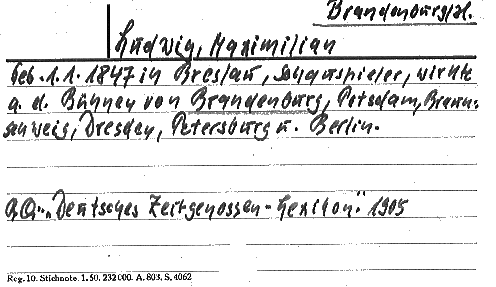 Brandenburg/H.
Ludwig, Maximilian
Geb. 1.1.1847 in Breslau, Schauspieler, wirkte
a. d. Bühnen von Brandenburg, Potsdam, Braun-
schweig, Dresden, Petersburg u. Berlin.
"Deutsches Zeitgenossen-Lexikon." 1905
Reg. 10. Stichnote. 1. 50. 232000. A. 803. S. 4062